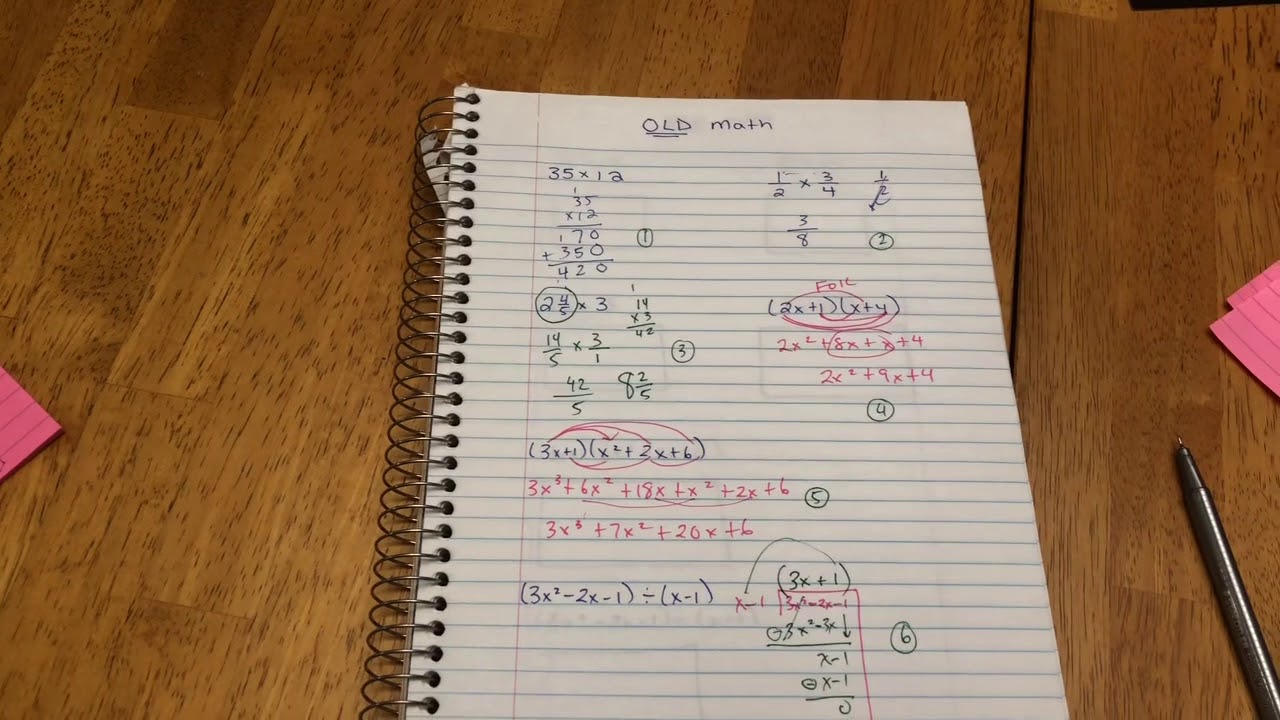 OLD math
35 × 12
1
35
×12
170
+ 350
420
①
1/2 × 3/4
3/8
②
2 4/5 × 3
14/5 × 3/1
42/5
8 2/5
1
14
×3
42
③
FOIL
(2x+1)(x+4)
2x² + 8x + x + 4
2x² + 9x + 4
④
(3x+1)(x² + 2x + 6)
3x³ + 6x² + 18x + x² + 2x + 6
3x³ + 7x² + 20x + 6
⑤
(3x² - 2x - 1) ÷ (x - 1)
(3x + 1)
x-1 3x² - 2x - 1
⊖ 3x² - 3x ↓
x - 1
⊖ x - 1
0
⑥